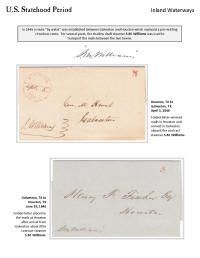 U.S. Statehood Period
Inland Waterways
In 1846 a route "by water" was established between Galveston and Houston which replaced a port meeting
of contract route. For several years, the shallow draft steamer S.M. Williams was used to
transport the mails between the two towns.
"S.M. Williams"
Houston, TX to
Galveston, TX
April 3, 1848
Folded letter entered
mails in Houston and
carried to Galveston
aboard the contract
steamer S.M. Williams
Galveston
Galveston, TX to
Houston, TX
June 19, 1848
Folded letter placed in
the mails at Houston
after arrival from
Galveston aboard the
contract steamer
S.M. Williams
Henry F. Fisher Esq
Houston